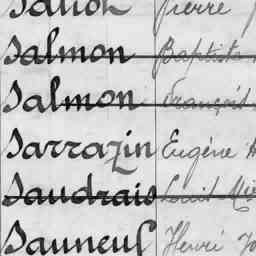 Pierre
Salmon Baptiste
Salmon François
Sarrazin Eugène
Saudrais Louis
Sauneuf Henri